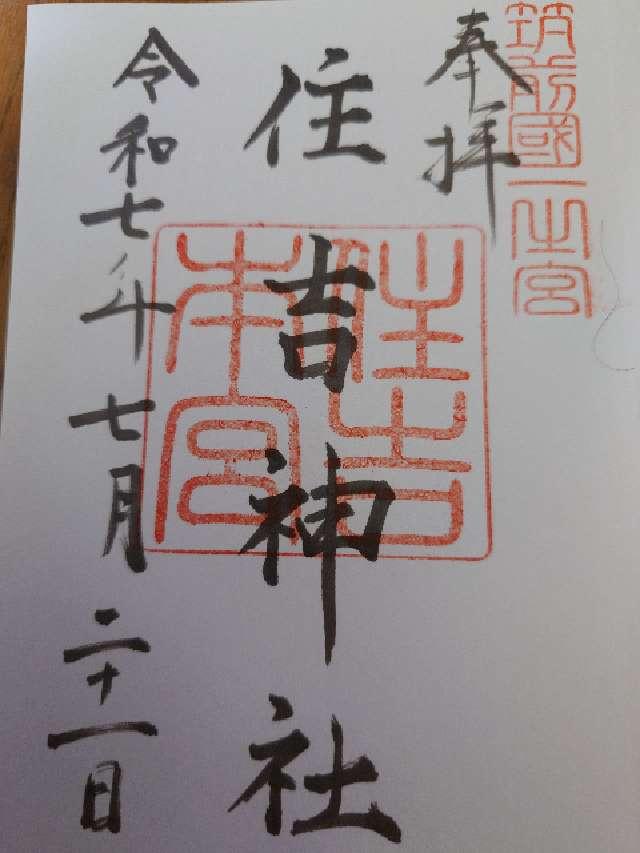 筑前國一之宮
奉拝
住吉神社
住吉
本宮
令和七年七月二十一日